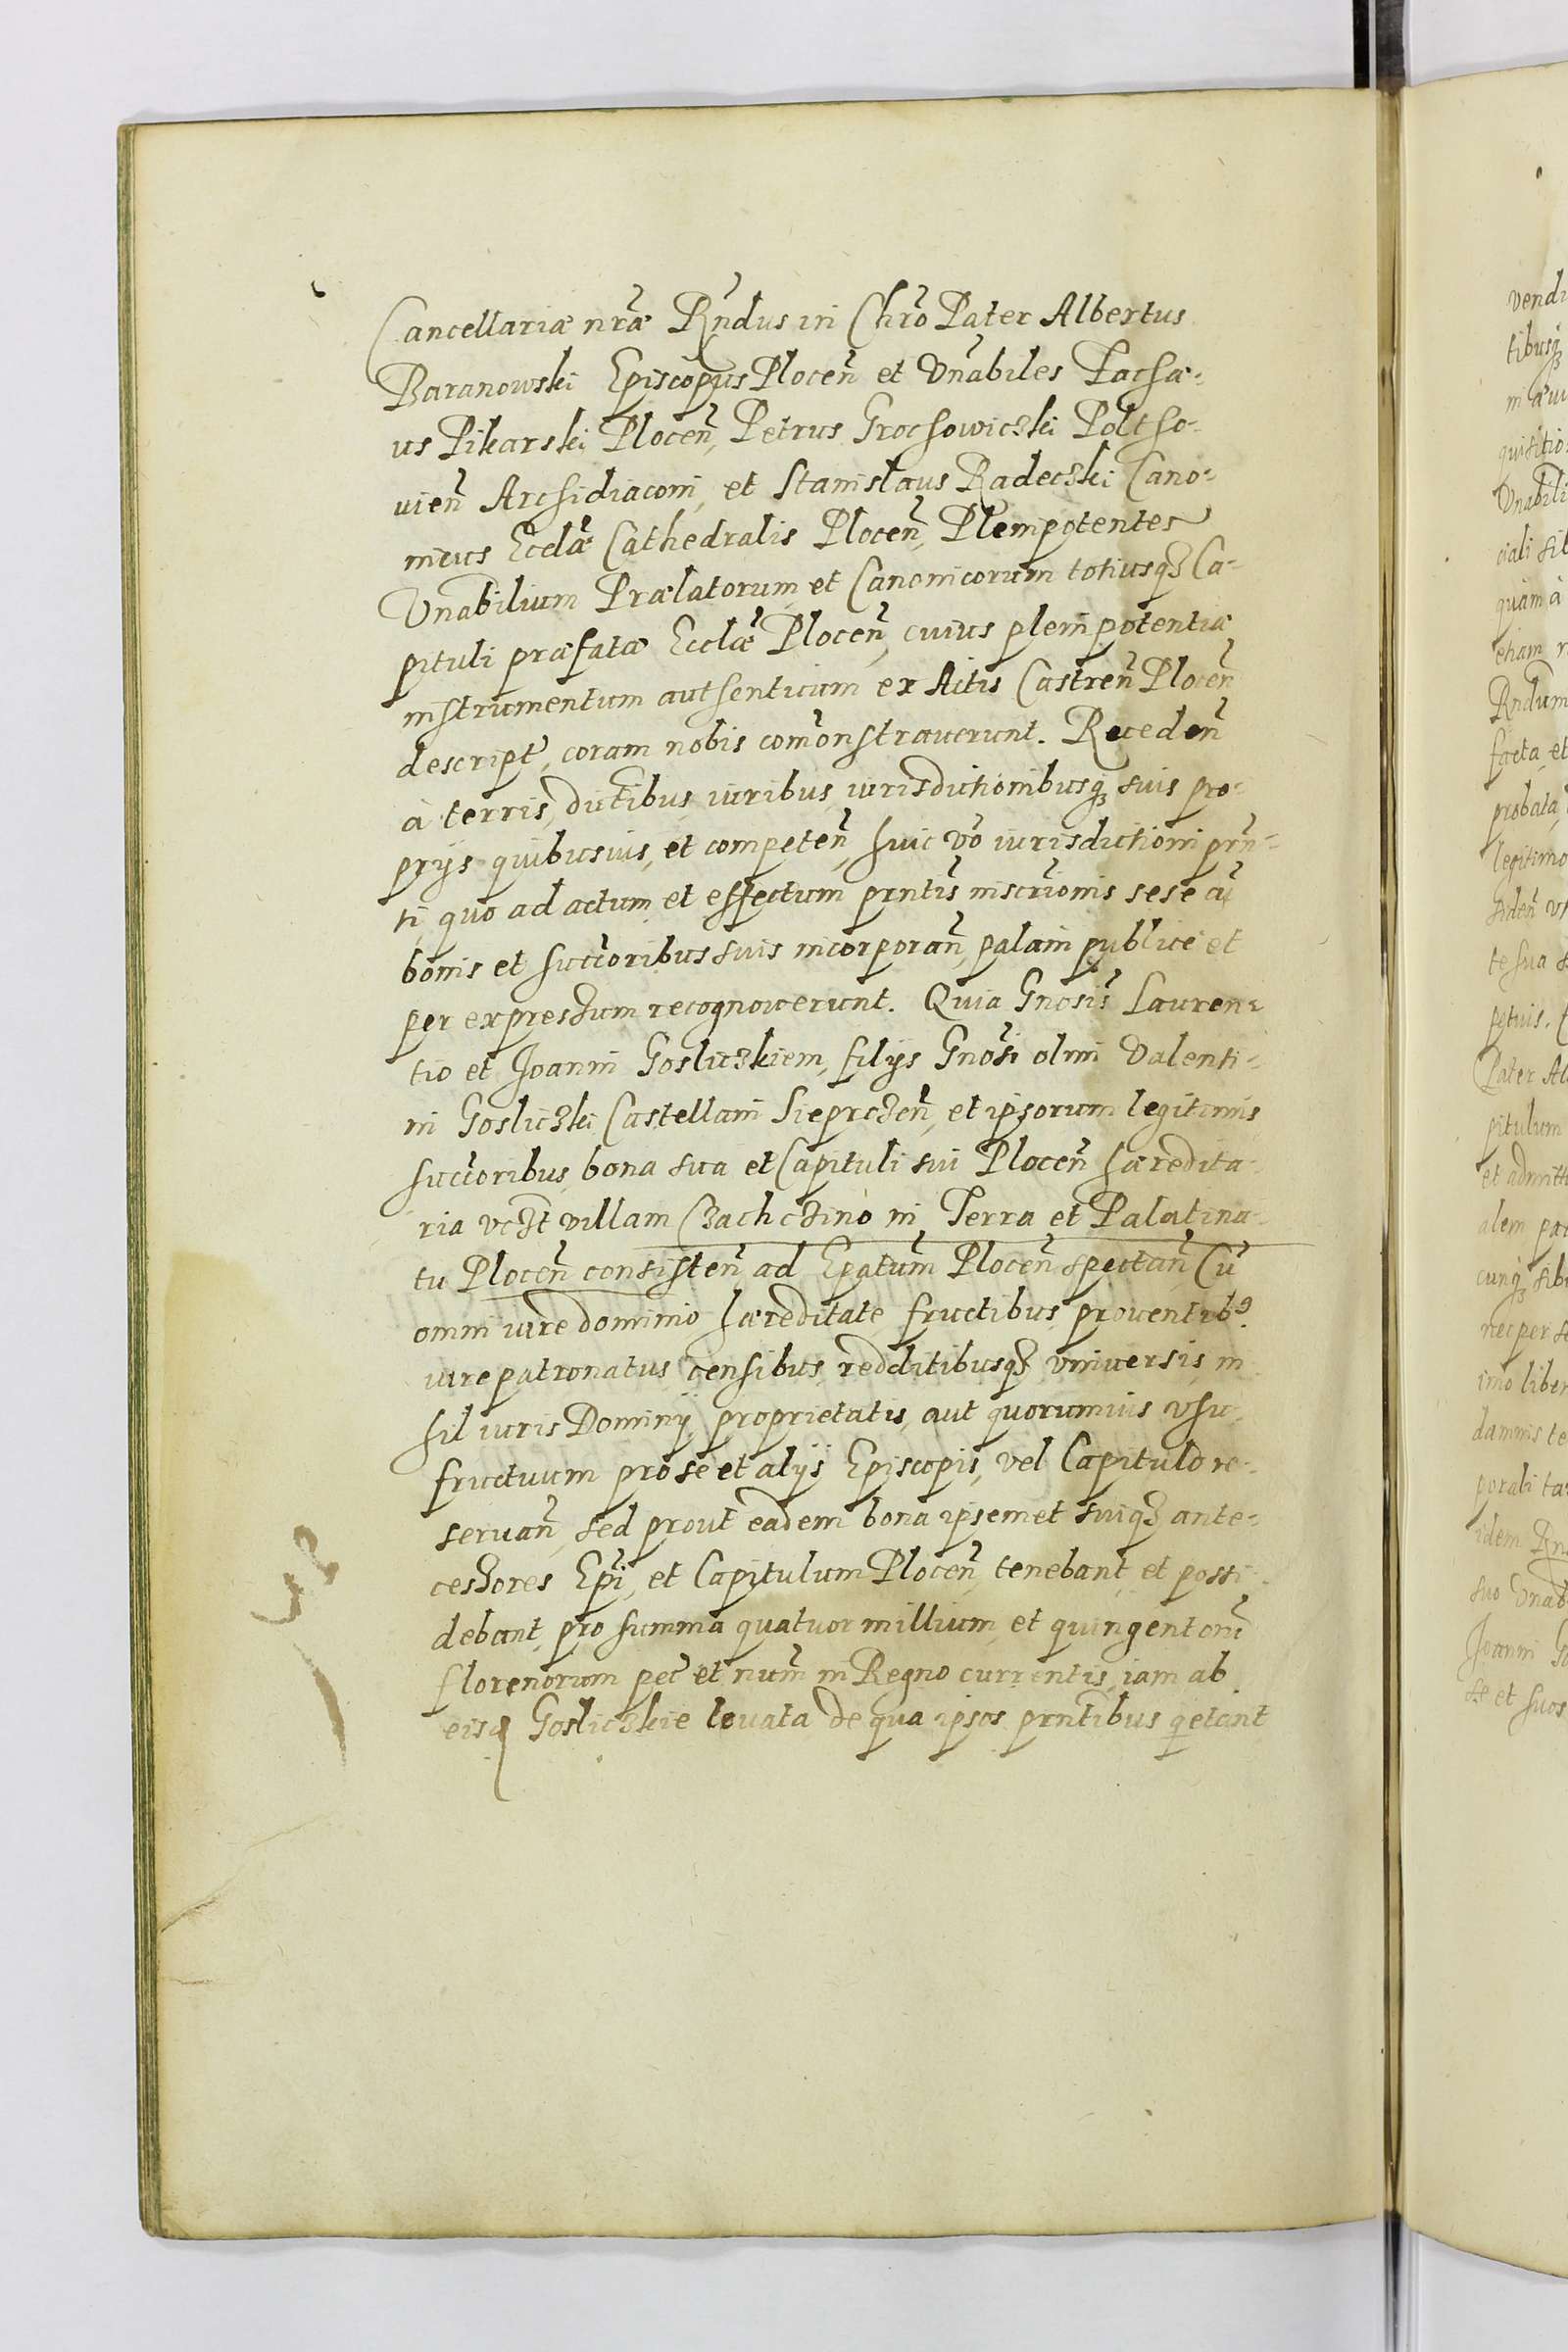 Cancellariæ nrã̃e Rñdus in Chrõ Pater Albertus
Baranowski Episcopus Plocen̄ et Vnabiles Pachæ-
us Pikarski Plocen̄, Petrus Grochowiczki Poltho-
uien̄ Archidiaconi, et Stanislaus Radeczki Cano-
nicus Ecclæ Cathedralis Plocen̄, Plenipotentes
Vnabilium Prælatorum et Canonicorum totiusq3 Ca-
pituli præfatæ Ecclæ Plocen̄, cuius plenipotentiæ
instrumentum authenticum ex Actis Castren̄ Plocen̄
descript, coram nobis com̃onstrauerunt. Receden̄
à terris, distibus, iuribus, iurisdictionibusq3 suis pro-
prijs quibusuis, et competen̄, huic võ iurisdictioni prñ-
ti, quo ad actum et effectum prntis inscrionis sese cũ
bonis et succoribus suis incorporan̄, palam publice et
per expressum recognouerunt. Quia Gnosis Lauren-
tio et Joanni Gosliczkiem, filijs Gnosi olim Valenti-
ni Gosliczki Castellani Sieprczen̄, et ipsorum legitimis
succoribus, bona sua et Capituli sui Plocen̄ hæredita-
ria vczt villam Czachczino in Terra et Palatina-
tu Plocen̄ consisten̄ ad Epatum Plocen̄ spectan̄ Cũ
omni iure dominio hæreditate fructibus prouentibꝰ.
iure patronatus censibus, redditibusq3 vniuersis, ni-
hil iuris Dominij proprietatis, aut quorumuis vsu-
fructuum pro se et alijs Episcopis, vel Capitulo re-
seruan̄, sed prout eadem bona ipsemet suiq3 ante-
cessores Epi, et Capitulum Plocen̄ tenebant et possi-
debant, pro summa quatuor millium et quingentorũ
florenorum pec̄ et num̄ in Regno currentis, iam ab
eisd Gosliczkie leuata de qua ipsos prntibus qetant